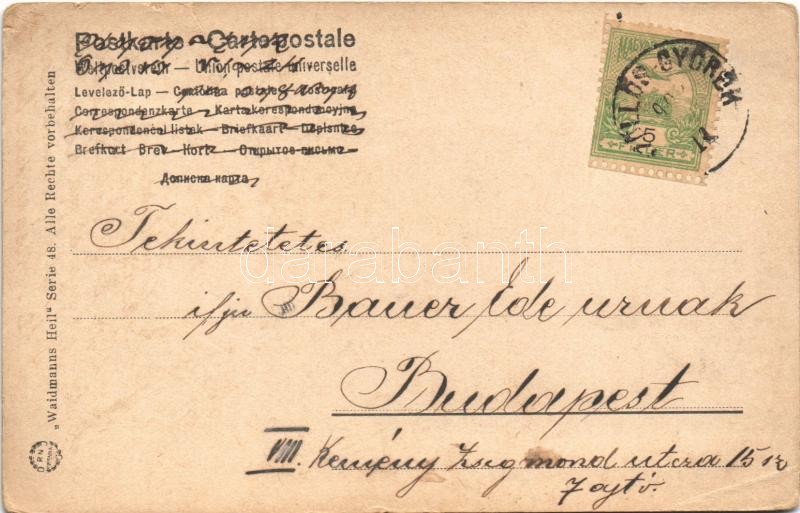 Postkarte – Carte postale
Weltpostverein – Union postale universelle
Levelező-Lap –
Correspondenzkarte – Kartakorespondencyjna
Korespondenční listek – Briefkaart – Dopisnice
Brefkort – Brev-Kort – Открытое письмо
Дописна карта
MAGYAR
FILLÉR
5
GYÖRÖK
Tekintetetes
ifju Bauer Ede urnak
Budapest
VIII. Kemény Zsigmond utcza 15 sz
7 ajtó.
darabanth
„Waidmanns Heil“ Serie 48. Alle Rechte vorbehalten